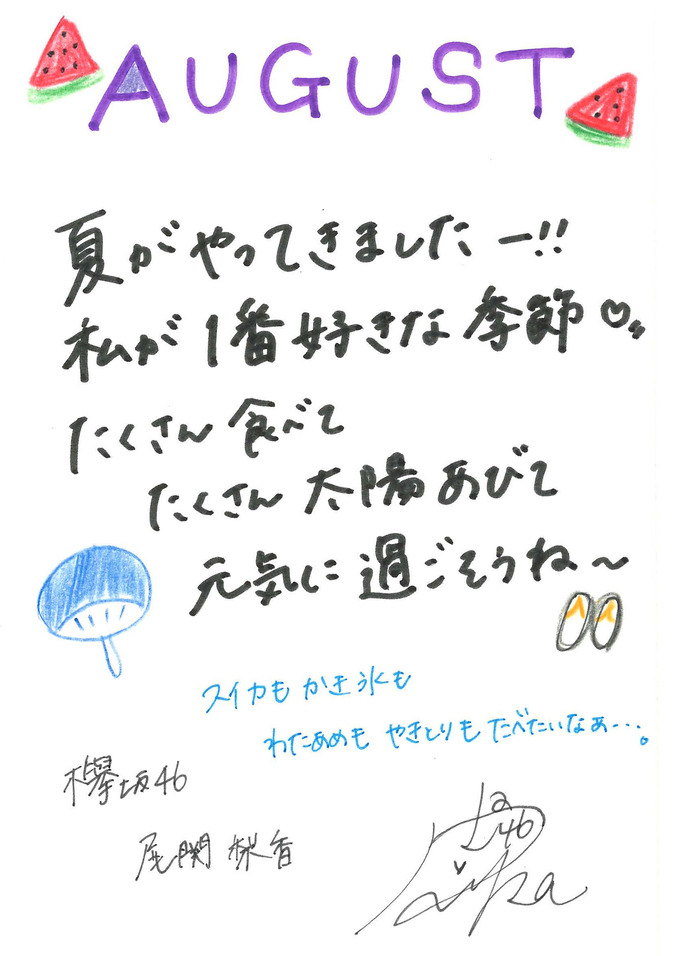 AUGUST
夏がやってきましたー!!
私が1番好きな季節♡
たくさん食べて
たくさん太陽あびて
元気に過ごそうね〜
スイカもかき氷も
わたあめもやきとりもたべたいなぁ…。
欅坂46
尾関梨香
46
Rika